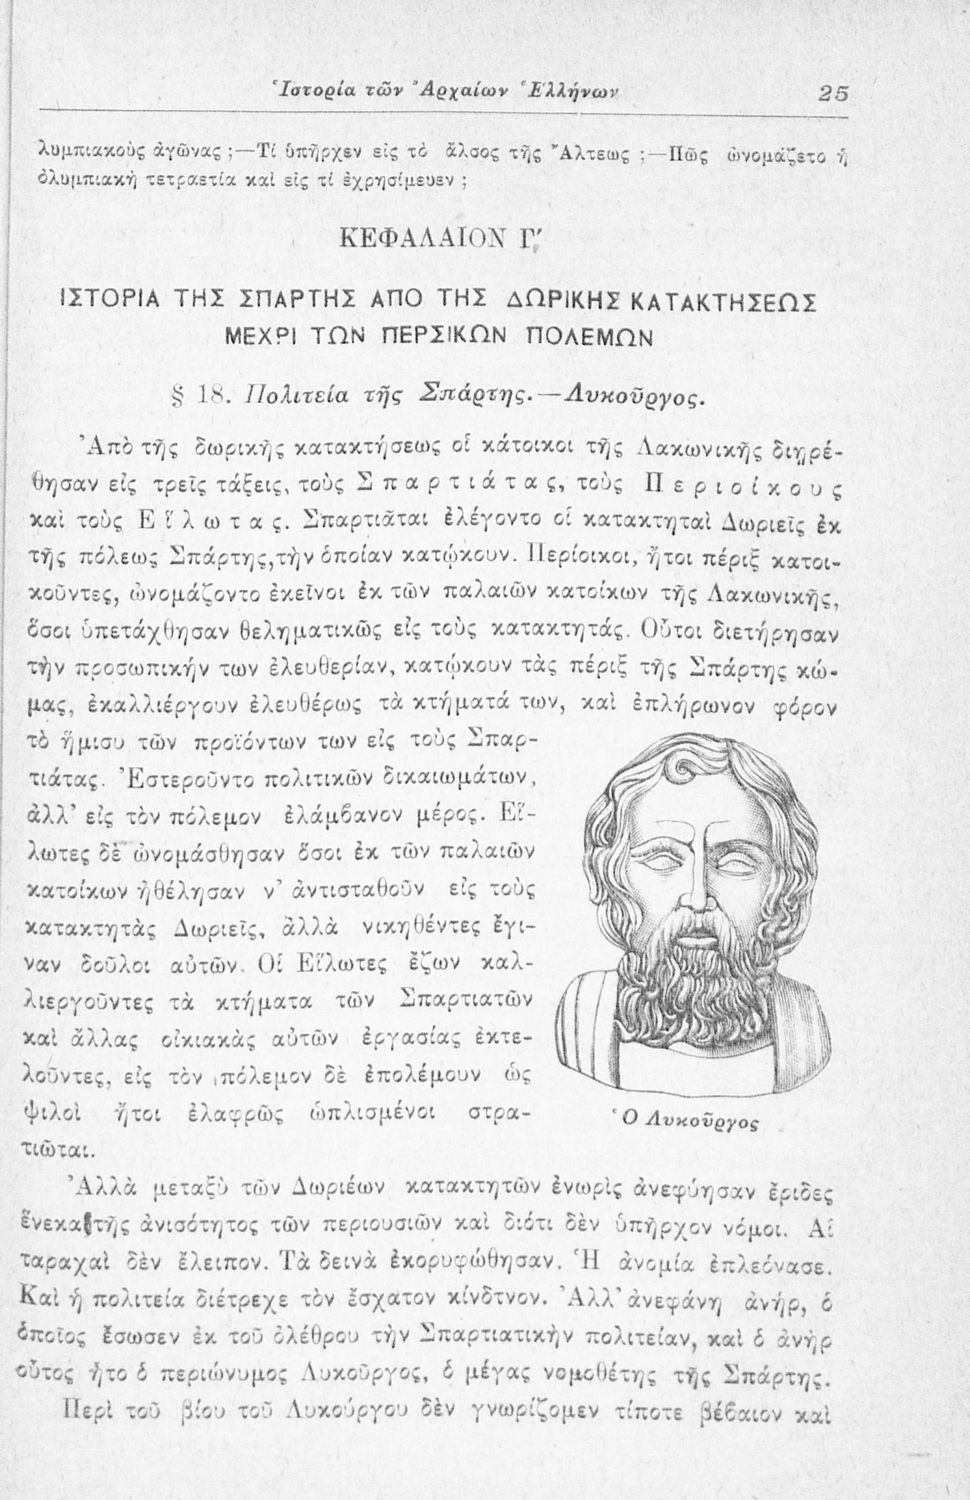 Ἱστορία τῶν Ἀρχαίων Ἑλλήνων 25
λυμπιακοὺς ἀγῶνας ;—Τί ὑπῆρχεν εἰς τὸ ἄλσος τῆς Ἄλτεως ;—Πῶς ὠνομάζετο ἡ
ὀλυμπιακὴ τετραετία καὶ εἰς τί ἐχρησίμευεν ;
ΚΕΦΑΛΑΙΟΝ Γ΄
ΙΣΤΟΡΙΑ ΤΗΣ ΣΠΑΡΤΗΣ ΑΠΟ ΤΗΣ ΔΩΡΙΚΗΣ ΚΑΤΑΚΤΗΣΕΩΣ
ΜΕΧΡΙ ΤΩΝ ΠΕΡΣΙΚΩΝ ΠΟΛΕΜΩΝ
§ 18. Πολιτεία τῆς Σπάρτης.—Λυκοῦργος.
Ἀπὸ τῆς δωρικῆς κατακτήσεως οἱ κάτοικοι τῆς Λακωνικῆς διῃρέ-
θησαν εἰς τρεῖς τάξεις, τοὺς Σπαρτιάτας, τοὺς Περιοίκους
καὶ τοὺς Εἵλωτας. Σπαρτιᾶται ἐλέγοντο οἱ κατακτηταὶ Δωριεῖς ἐκ
τῆς πόλεως Σπάρτης, τὴν ὁποίαν κατῴκουν. Περίοικοι, ἤτοι πέριξ κατοι-
κοῦντες, ὠνομάζοντο ἐκεῖνοι ἐκ τῶν παλαιῶν κατοίκων τῆς Λακωνικῆς,
ὅσοι ὑπετάχθησαν θεληματικῶς εἰς τοὺς κατακτητάς. Οὗτοι διετήρησαν
τὴν προσωπικήν των ἐλευθερίαν, κατῴκουν τὰς πέριξ τῆς Σπάρτης κώ-
μας, ἐκαλλιέργουν ἐλευθέρως τὰ κτήματά των, καὶ ἐπλήρωνον φόρον
τὸ ἥμισυ τῶν προϊόντων των εἰς τοὺς Σπαρ-
τιάτας. Ἐστεροῦντο πολιτικῶν δικαιωμάτων,
ἀλλ' εἰς τὸν πόλεμον ἐλάμβανον μέρος. Εἵ-
λωτες δὲ ὠνομάσθησαν ὅσοι ἐκ τῶν παλαιῶν
κατοίκων ἠθέλησαν ν' ἀντισταθοῦν εἰς τοὺς
κατακτητὰς Δωριεῖς, ἀλλὰ νικηθέντες ἔγι-
ναν δοῦλοι αὐτῶν. Οἱ Εἵλωτες ἔζων καλ-
λιεργοῦντες τὰ κτήματα τῶν Σπαρτιατῶν
καὶ ἄλλας οἰκιακὰς αὐτῶν ἐργασίας ἐκτε-
λοῦντες, εἰς τὸν πόλεμον δὲ ἐπολέμουν ὡς
ψιλοὶ ἤτοι ἐλαφρῶς ὡπλισμένοι στρα-
τιῶται.
Ὁ Λυκοῦργος
Ἀλλὰ μεταξὺ τῶν Δωριέων κατακτητῶν ἐνωρὶς ἀνεφύησαν ἔριδες
ἕνεκα τῆς ἀνισότητος τῶν περιουσιῶν καὶ διότι δὲν ὑπῆρχον νόμοι. Αἱ
ταραχαὶ δὲν ἔλειπον. Τὰ δεινὰ ἐκορυφώθησαν. Ἡ ἀνομία ἐπλεόνασε.
Καὶ ἡ πολιτεία διέτρεχε τὸν ἔσχατον κίνδτνον. Ἀλλ' ἀνεφάνη ἀνήρ, ὁ
ὁποῖος ἔσωσεν ἐκ τοῦ ὀλέθρου τὴν Σπαρτιατικὴν πολιτείαν, καὶ ὁ ἀνὴρ
οὗτος ἦτο ὁ περιώνυμος Λυκοῦργος, ὁ μέγας νομοθέτης τῆς Σπάρτης.
Περὶ τοῦ βίου τοῦ Λυκούργου δὲν γνωρίζομεν τίποτε βέβαιον καὶ